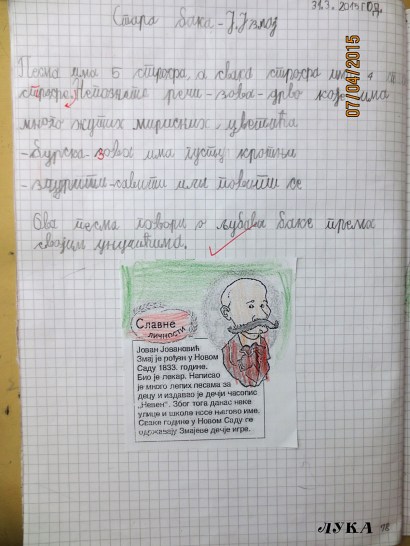 31.3.2015 год.
Стара бака - Ј.Ј.Змај
07/04/2015
Песма има 5 строфа, а свака строфа има 4
строфе. Непознате речи - зова - дрво које има
много жутих мирисних цветића
- бурска - зова има густу крошњу
- савити или повити се
Ова песма говори о љубави баке према
својим унучићима.
Славне
личности
Јован Јовановић
Змај је рођен у Новом
Саду 1833. године.
Био је лекар. Написао
је много лепих песама за
децу и издавао је дечји часопис
„Невен". Због тога данас неке
улице и школе носе његово име.
Сваке године у Новом Саду се
одржавају Змајеве дечје игре.
ЛУКА